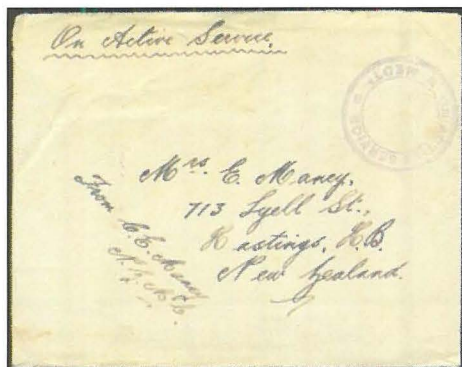 On Active Service.
Mrs. E. Maney,
713 Lyell St.,
Hastings, H.B.
New Zealand.
From C. E. Maney